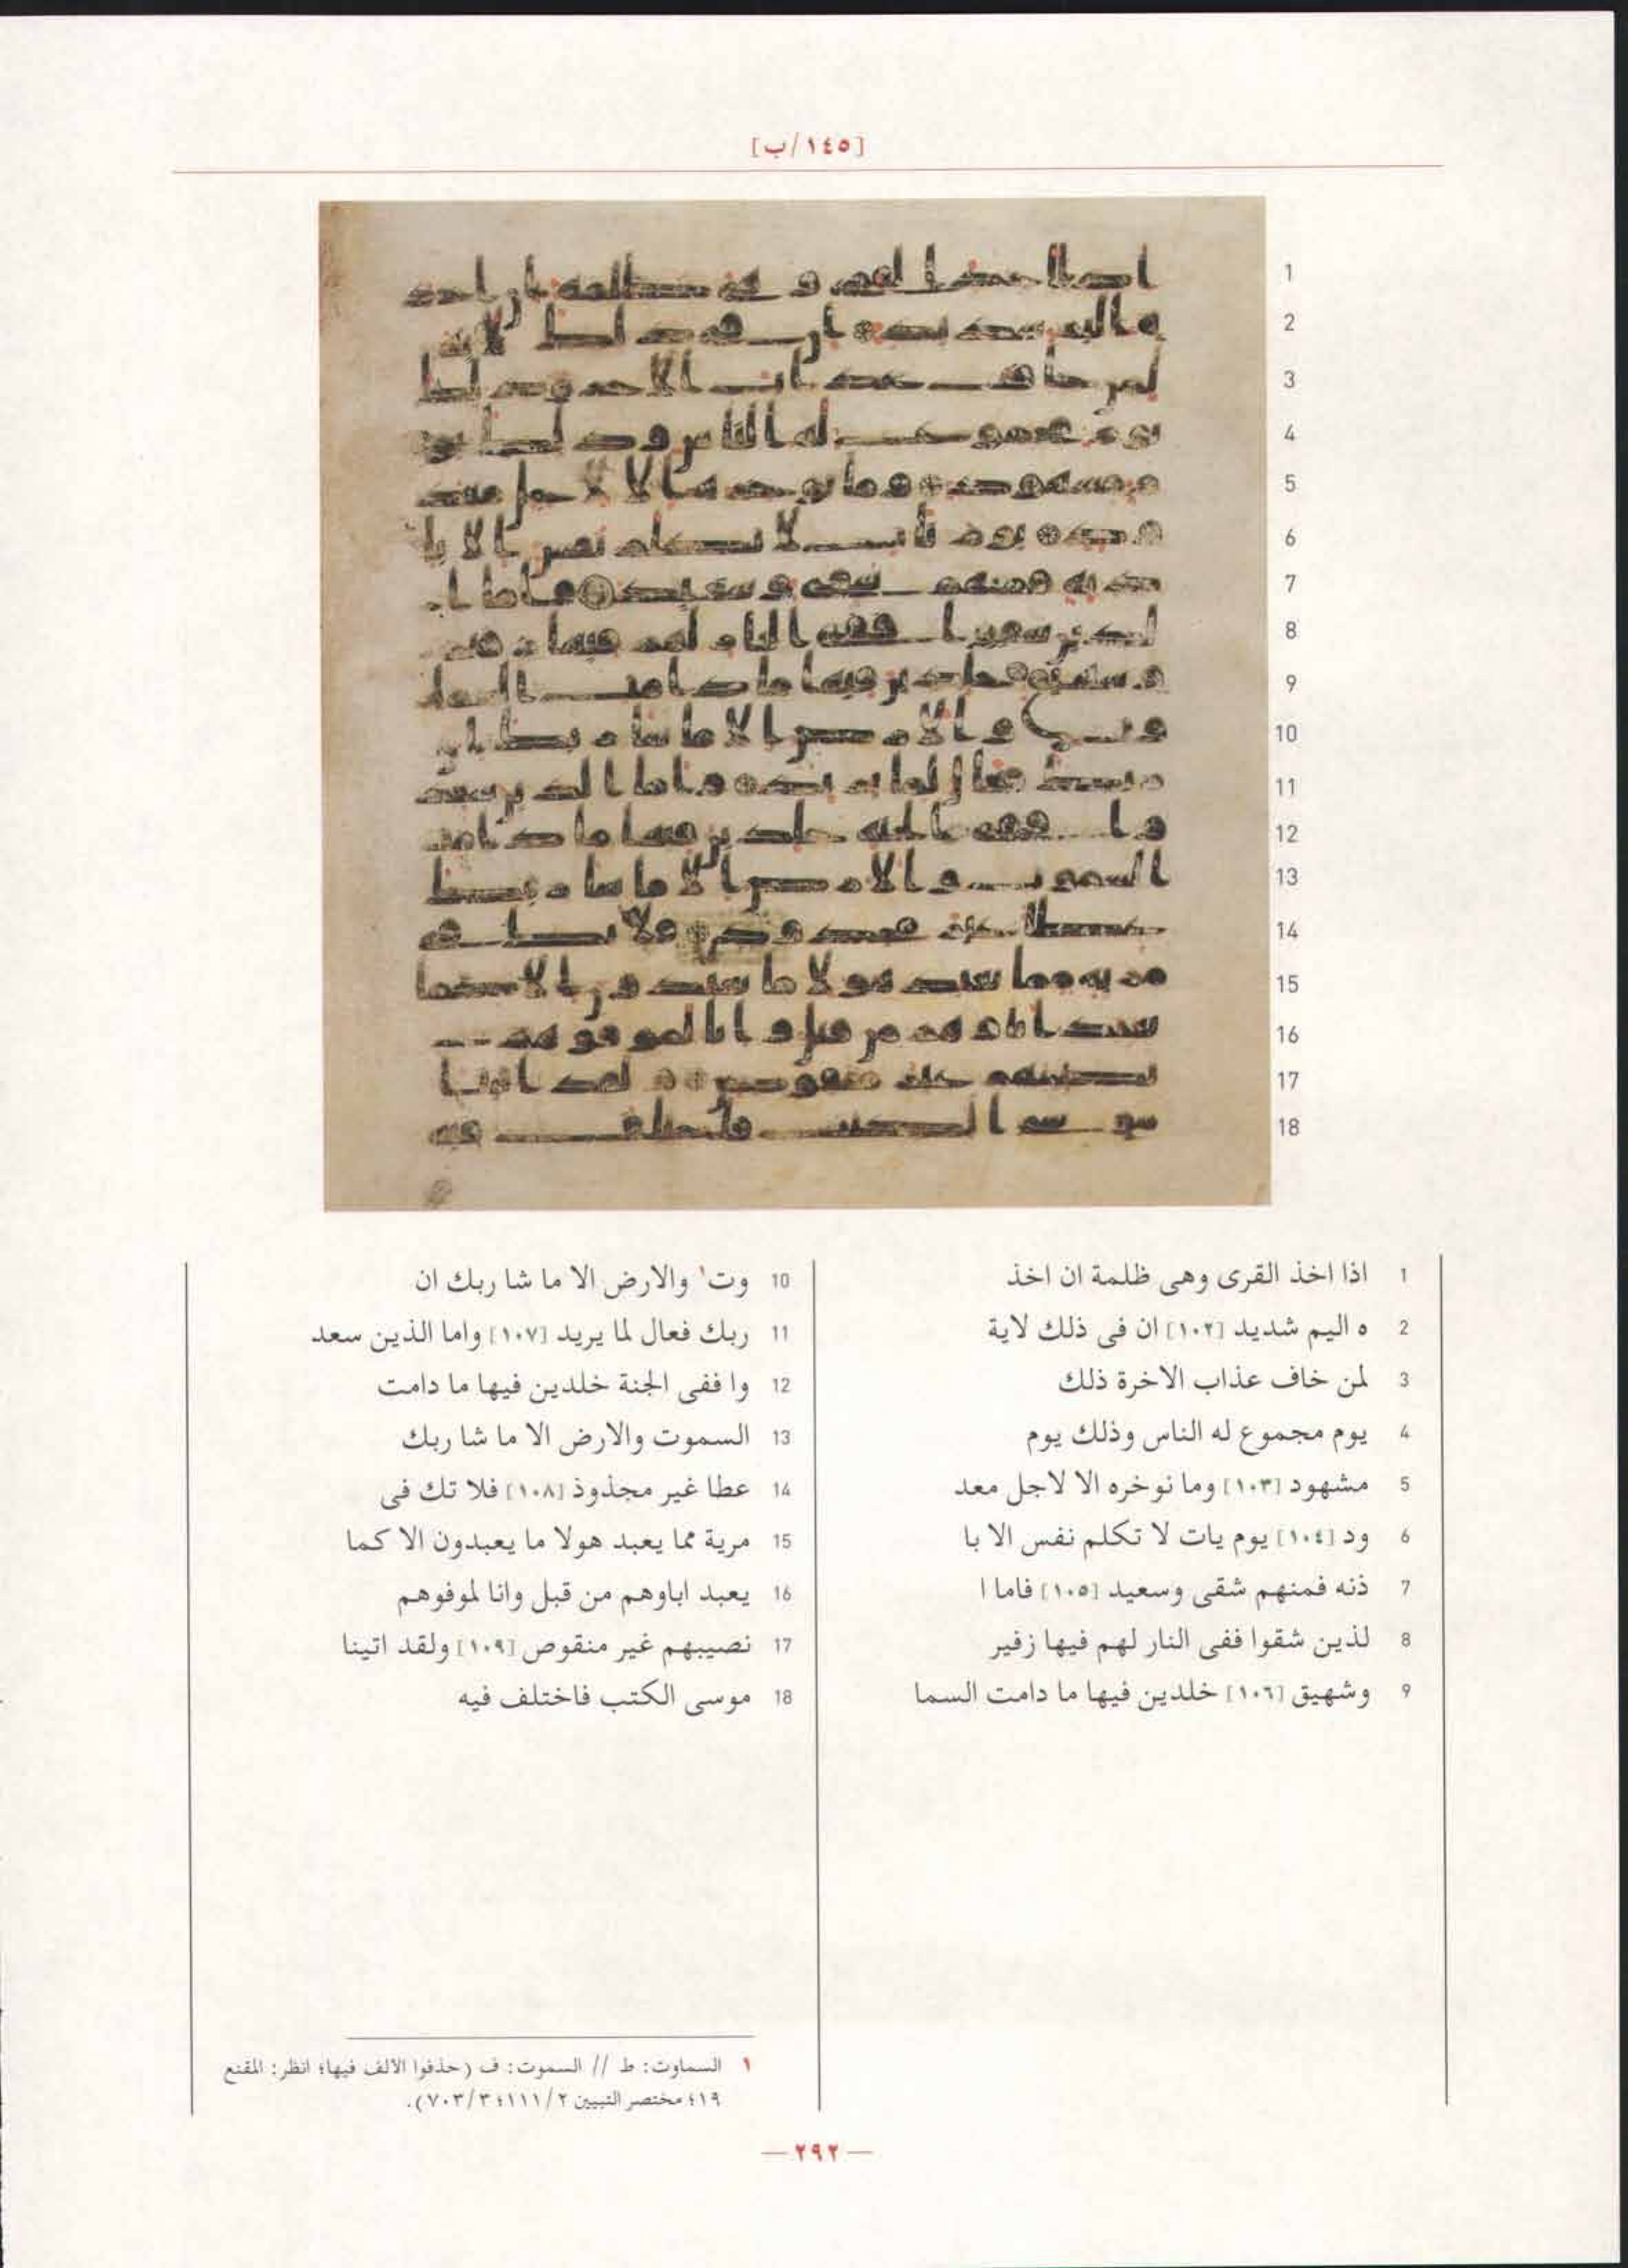 [١٤٥/ب]
1 اذا اخذ القرى وهى ظلمة ان اخذ
2 ه اليم شديد [١٠٢] ان فى ذلك لاية
3 لمن خاف عذاب الاخرة ذلك
4 يوم مجموع له الناس وذلك يوم
5 مشهود [١٠٣] وما نوخره الا لاجل معد
6 ود [١٠٤] يوم يات لا تكلم نفس الا با
7 ذنه فمنهم شقى وسعيد [١٠٥] فاما ا
8 لذين شقوا ففى النار لهم فيها زفير
9 وشهيق [١٠٦] خلدين فيها ما دامت السما
10 وت١ والارض الا ما شا ربك ان
11 ربك فعال لما يريد [١٠٧] واما الذين سعد
12 وا ففى الجنة خلدين فيها ما دامت
13 السموت والارض الا ما شا ربك
14 عطا غير مجذوذ [١٠٨] فلا تك فى
15 مرية مما يعبد هولا ما يعبدون الا كما
16 يعبد اباوهم من قبل وانا لموفوهم
17 نصيبهم غير منقوص [١٠٩] ولقد اتينا
18 موسى الكتب فاختلف فيه
١ السماوت: ط // السموت: ف (حذفوا الألف فيها؛ انظر: المقنع
١٩؛ مختصر التبيين ٢/١١١؛ ٣/٧٠٣).
— ٢٩٢ —